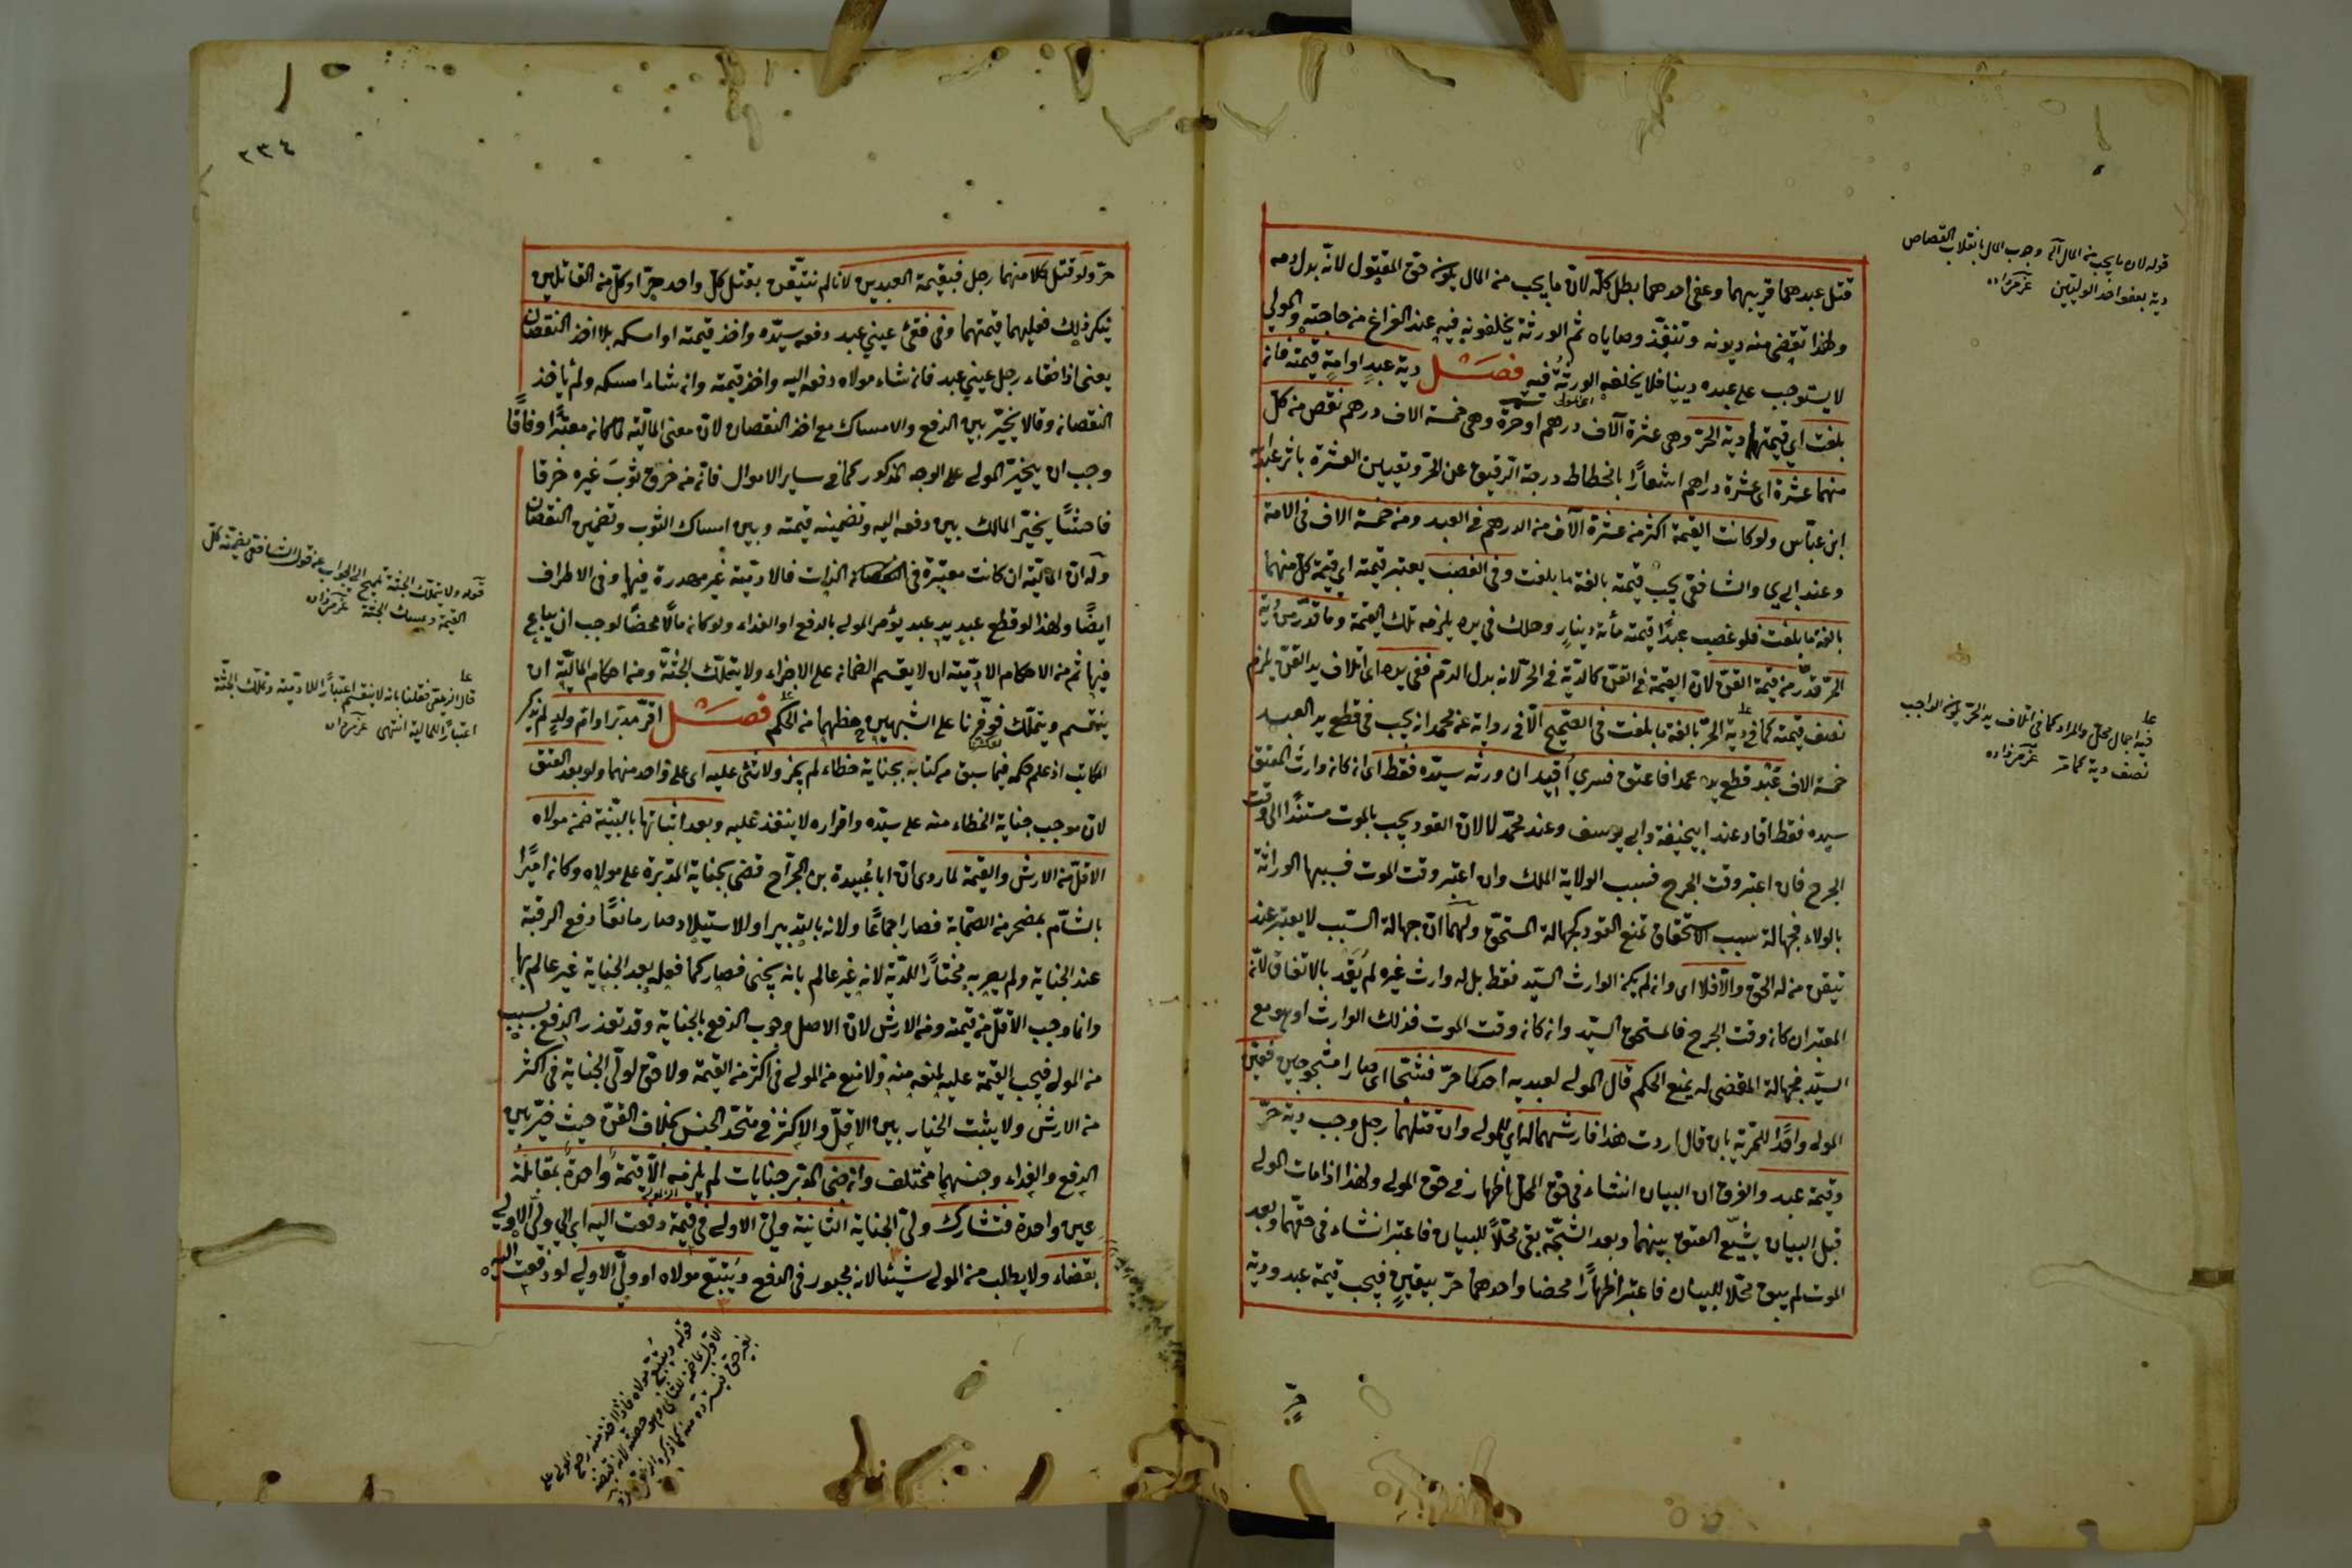 قتل عبدهما قريبهما وعفى احدهما بطل كله لان ما يجب من المال يكون حق المقتول لانه بدل دمه
ولهذا تقضى منه ديونه وتنفذ وصاياه ثم الورثة يخلفونه فيه عند الفراغ من حاجته والمولى
لا يستوجب على عبده دينا فلا يخلفه الورثة فيه فصل دية عبد او امة قيمته فان
بلغت اي قيمتهما دية الحر وهى عشرة آلاف درهم او حرة وهى خمسة الاف درهم نقص من كل
منهما عشرة اى عشرة دراهم اشعارًا بانحطاط درجة الرقيق عن الحر وتعيين العشرة باثر عبد الله
ابن عباس ولو كانت القيمة اكثر من عشرة آلاف من الدرهم فى العبد ومن خمسة الاف فى الامة
وعند ابي يوسف والشافعى يجب قيمته بالغة ما بلغت وفى الغصب يعتبر قيمته اي قيمة كل منهما
بالغة ما بلغت فلو غصب عبدًا قيمته مأة دينار وهلك فى يده يلزمه تلك القيمة وما قدر من دية
الحر قدر من قيمة القن لان القيمة فى القن كالدية فى الحر لانه بدل الدم ففى يده اى اتلاف يد القن يلزم
نصف قيمته كما فى دية الحر بالغة ما بلغت فى الصحيح الا فى رواية عن محمد انه يجب فى قطع يد العبد
خمسة الاف عبد قطع يده عمدا فاعتق فسرى أقيد ان ورثه سيده فقط اى ان كان وارث المعتق
سيده فقط اقاد عند ابيحنيفة وابى يوسف وعند محمد لا لان القود يجب بالموت مستندًا الى وقت
الجرح فان اعتبر وقت الجرح فسبب الولاية الملك وان اعتبر وقت الموت فسببها الوراثة
بالولاء فجهالة سبب الاستحقاق تمنع القود كجهالة المستحق ولهما ان جهالة السبب لا يعتبر عند
تيقن من له الحق والا فلا اى وان لم يكن الوارث السيد فقط بل له وارث غيره لم يقد بالاتفاق لان
المعتبر ان كان وقت الجرح فالمستحق السيد وان كان وقت الموت فذلك الوارث او هو مع
السيد فجهالة المقضى له يمنع الحكم قال المولى لعبديه احدكما حر فشجا اى صارا مشجوجين فعين
المولى واحدًا للحرية بان قال اردت هذا فارشهما له اي للمولى وان قتلهما رجل وجب دية حر
وقيمة عبد والفرق ان البيان انشاء فى حق المحل اظهار فى حق المولى ولهذا اذا مات المولى
قبل البيان يشيع العتق بينهما وبعد الشجة بقى محلاً للبيان فاعتبر انشاء فى حقهما وبعد
الموت لم يبق محلا للبيان فاعتبر اظهارًا محضا واحدهما حر بيقين فيجب قيمة عبد ودية
حر
قوله لان ما يجب من المال الخ وجوب المال بانقلاب القصاص
دية بعفو احد الوليين عزمى زاده
فيه اجمال مخل والمراد كما فى اتلاف يد الحر يكون الواجب
نصف دية كما مر عزمى زاده
٢٣٤
حر ولو قتل كلا منهما رجل فبقيمة العبدين لانا لم نتيقن بقتل كل واحد حرًا وكل من القاتلين
ينكر ذلك فعليهما قيمتهما وفى فقئ عيني عبد دفعه سيده واخذ قيمته او امسكه بلا اخذ النقصان
يعنى اذا فقاء رجل عيني عبد فان شاء مولاه دفعه اليه واخذ قيمته وان شاء امسكه ولم ياخذ
النقصان وقالا يخير بين الدفع والامساك مع اخذ النقصان لان معنى المالية لما كان معتبرًا وفاقًا
وجب ان يتخير المولى على الوجه المذكور كما فى سائر الاموال فان من خرق ثوب غيره خرقا
فاحشًا يخير المالك بين دفعه اليه وتضمينه قيمته وبين امساك الثوب وتضمين النقصان
وله ان المالية ان كانت معتبرة فى الذات فالادمية غير مهدرة فيها وفى الاطراف
ايضًا ولهذا لو قطع عبد يد عبد يؤمر المولى بالدفع او الفداء ولو كان مالاً محضًا لوجب ان يباع
فيها ثم من الاحكام الادمية ان لا يقسم الضمان على الاجزاء ولا يتملك الجثة ومن احكام المالية ان
ينقسم ويتملك فوفرنا على الشبهين حظهما من الحكم فصل اقر مدبر او ام ولد لم يذكر
المكاتب اذ علم حكمه فيما سبق من كتابه بجناية خطاء لم يجز ولا شئ عليه اى على واحد منهما ولو بعد العتق
لان موجب جناية الخطاء منه على سيده واقراره لا ينفذ عليه وبعد اثباتها بالبينة ضمن مولاه
الاقل من الارش والقيمة لما روى ان ابا عبيدة بن الجراح قضى بجناية المدبرة على مولاه وكان اميرًا
بالشام بمحضر من الصحابة فصار اجماعًا ولانه بالتدبير او الاستيلاد صار مانعًا دفع الرقبة
عند الجناية ولم يصر به مختارًا للدية لانه غير عالم بانه يجنى فصار كما فعله بعد الجناية غير عالم بها
وانما وجب الاقل من قيمته ومن الارش لان الاصل وجوب الدفع بالجناية وقد تعذر الدفع بسبب
من المولى فيجب القيمة عليه لمنعه منه ولا منع من المولى فى اكثر من القيمة ولا حق لولى الجناية فى اكثر
من الارش ولا يثبت الخيار بين الاقل والاكثر فى متحد الجنس بخلاف القن حيث خير بين
الدفع والفداء وجنسهما مختلف وان جنى المدبر جنايات لم يلزمه الا قيمة واحدة بمقابلة
عين واحدة فتشارك ولى الجناية الثانية ولى الاولى فى قيمة دفعت اليه اى الى ولى الاولى
بقضاء ولا يطلب من المولى شيئا لانه مجبور فى الدفع ويتبع مولاه او ولى الاولى لو دفعت اليه
قوله ولا يتملك الجثة تلميح الى الجواب عن قول الشافعى يضمنه كل
القيمة ويمسك الجثة عزمى زاده
قال الزيلعى فقلنا بانه لا ينقسم اعتبارًا للادمية وتملك الجثة
اعتبارًا للمالية انتهى عزمى زاده
قوله ويتبع مولاه فاذا اخذ منه رجع المولى على
الاول بما ضمن للثانى وهو حصته لانه قبضه
بغير حق فيسترده منه كما ذكره الزيلعى